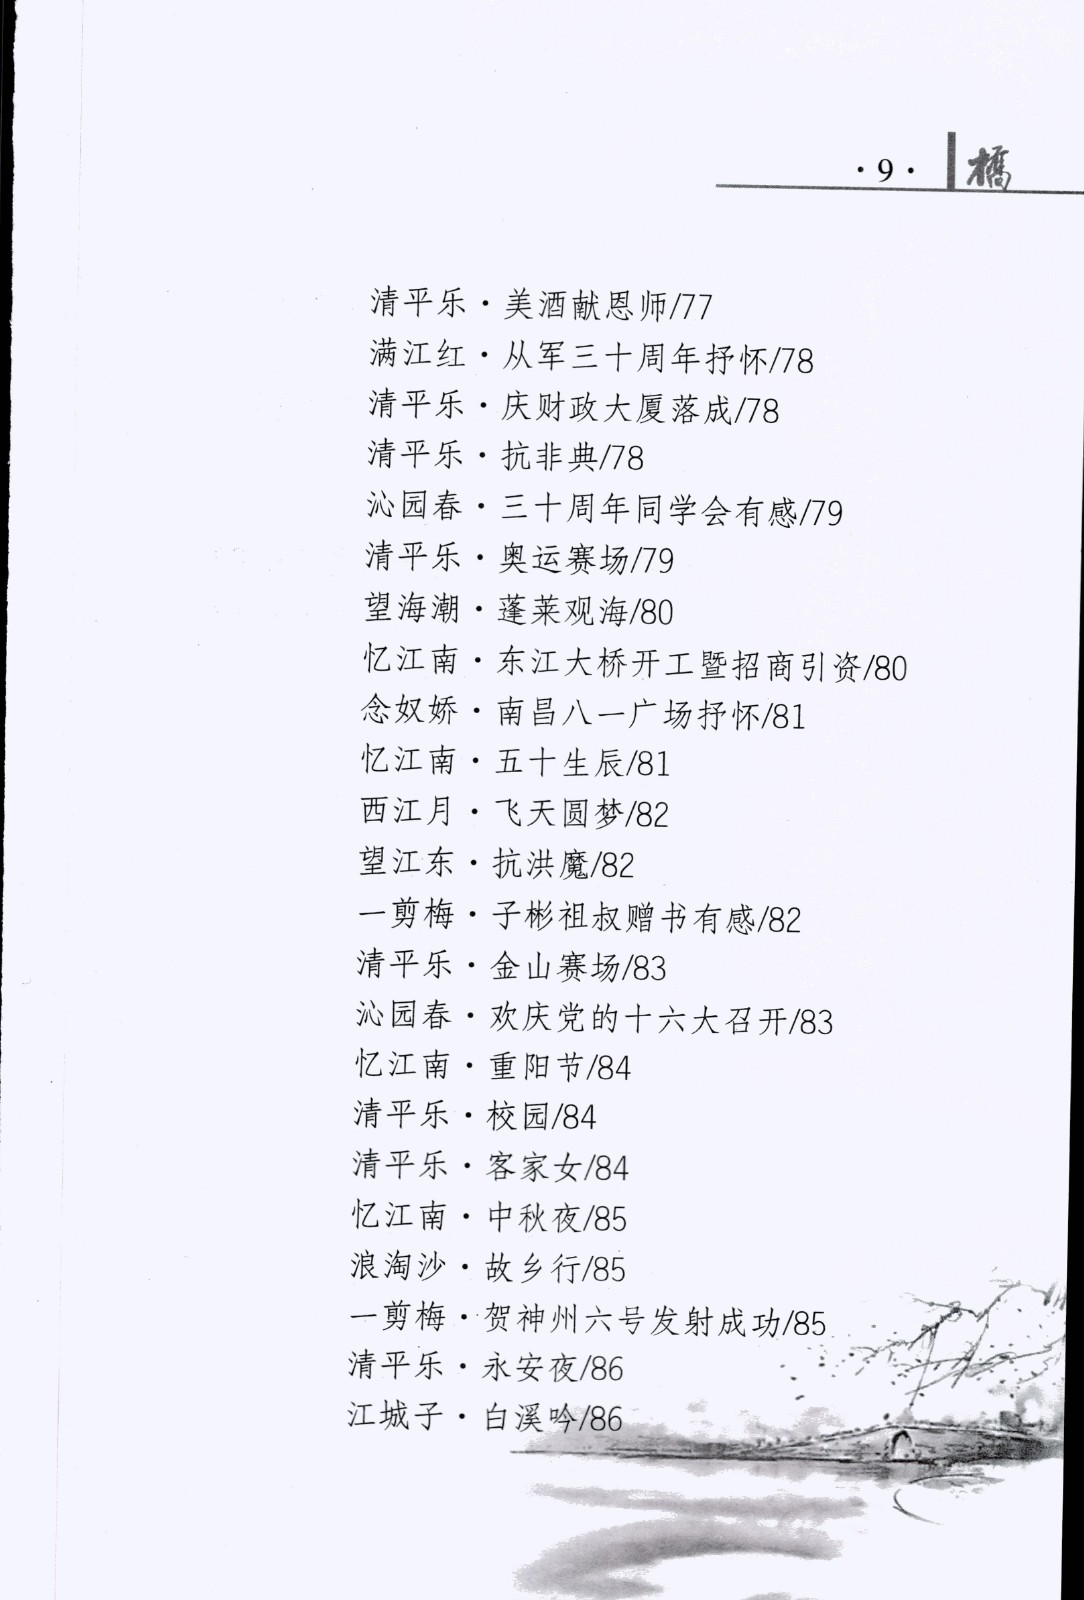 ·9· 橋
清平乐·美酒献恩师/77
满江红·从军三十周年抒怀/78
清平乐·庆财政大厦落成/78
清平乐·抗非典/78
沁园春·三十周年同学会有感/79
清平乐·奥运赛场/79
望海潮·蓬莱观海/80
忆江南·东江大桥开工暨招商引资/80
念奴娇·南昌八一广场抒怀/81
忆江南·五十生辰/81
西江月·飞天圆梦/82
望江东·抗洪魔/82
一剪梅·子彬祖叔赠书有感/82
清平乐·金山赛场/83
沁园春·欢庆党的十六大召开/83
忆江南·重阳节/84
清平乐·校园/84
清平乐·客家女/84
忆江南·中秋夜/85
浪淘沙·故乡行/85
一剪梅·贺神州六号发射成功/85
清平乐·永安夜/86
江城子·白溪吟/86